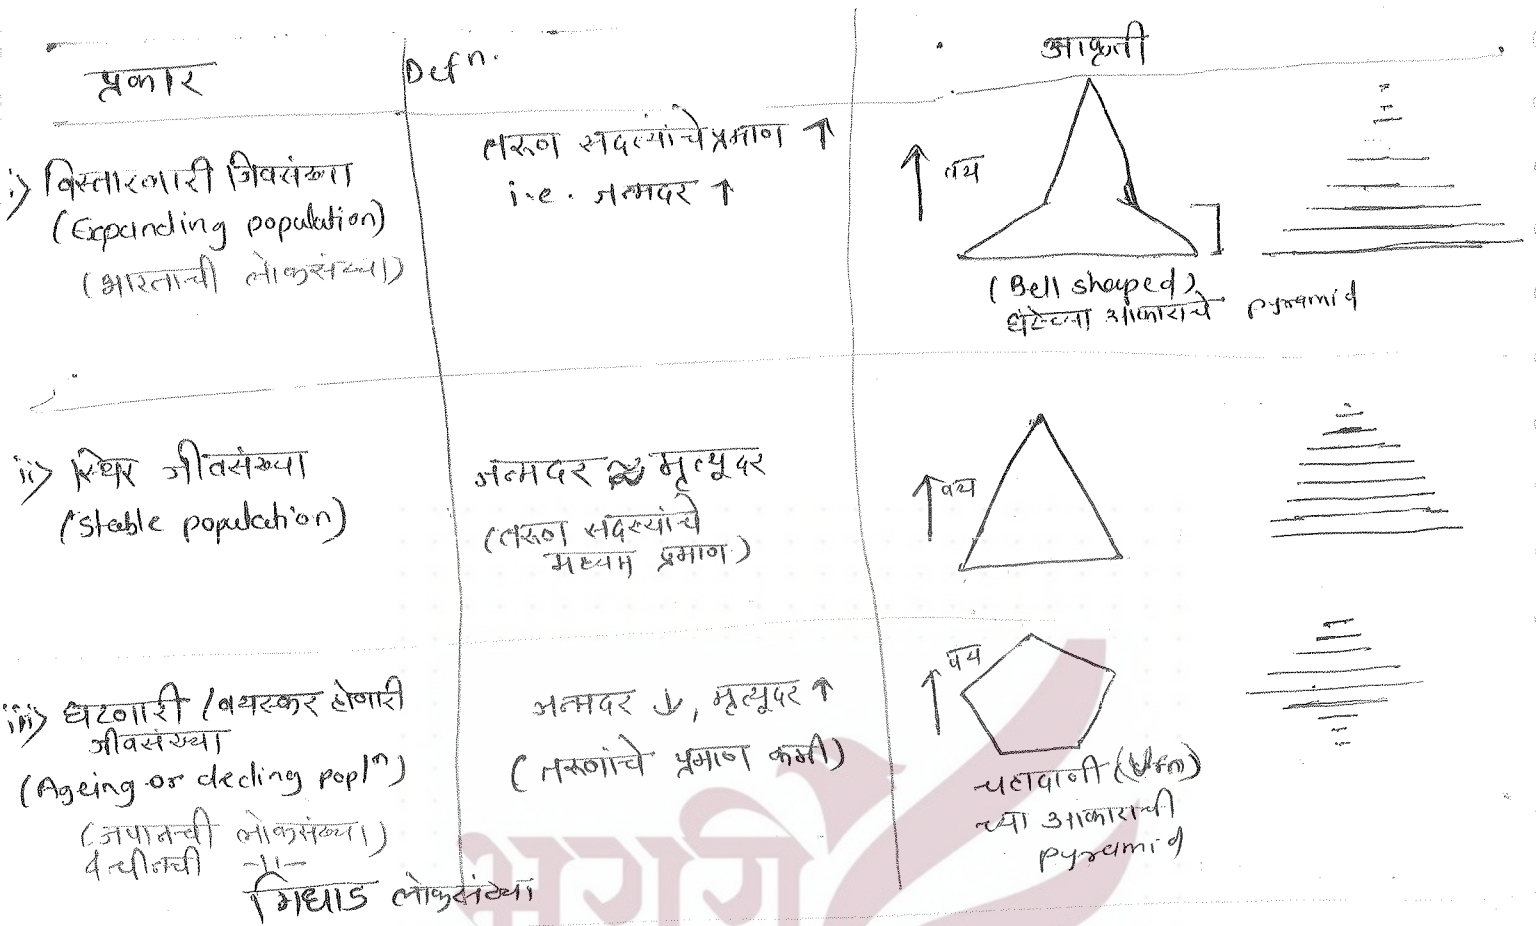 प्रकार
Defn.
आकृती
i) विस्तारणारी जिवसंख्या
(Expanding population)
(भारताची लोकसंख्या)
तरूण सदस्यांचे प्रमाण ↑
i.e. जन्मदर ↑
↑ वय
(Bell shaped)
घंटेच्या आकाराचे pyramid
ii) स्थिर जीवसंख्या
(stable population)
जन्मदर ≈ मृत्यूदर
(तरूण सदस्यांचे
मध्यम प्रमाण)
↑ वय
iii) घटणारी / वयस्कर होणारी
जीवसंख्या
(Ageing or decling popln)
(जपानची लोकसंख्या)
व चीनची -||-
जन्मदर ↓, मृत्यूदर ↑
(तरूणांचे प्रमाण कमी)
↑ वय
चहादाणी (Urn)
च्या आकाराची
pyramid
लोकसंख्या